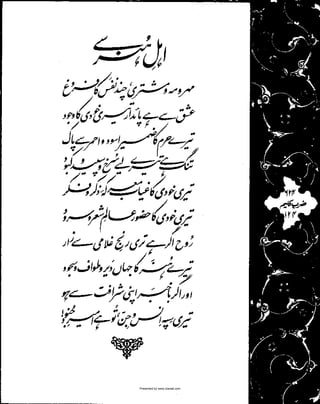 اہلِ ہنر سے
مہر و مہ و مشتری چند نفس کا فروغ
عشق سے ہے پائدار تیری خودی کا وجود
تیرے حرم کا ضمیر اسود و احمر سے پاک
ننگ ہے تیرے لیے سرخ و سپید و کبود
تیری خودی کا غیاب معرکۂ ذکر و فکر
تیری خودی کا حضور عالمِ شعر و سرود
روح اگر ہے تری رنجِ غلامی سے زار
تیرے ہنر کا جہاں دیر و طواف و سجود
اور اگر باخبر اپنی شرافت سے ہو
تیری سپہ انس و جن، تو ہے امیرِ جنود
ضربِ کلیم
Presented by www.ziaraat.com